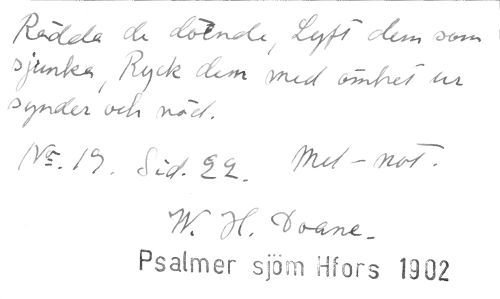 Rädda de döende, Lyft dem som
sjunka, Ryck dem med ömhet ur
synder och nöd.
No. 19. Sid. 22. Med-not.
W. H. Doane.
Psalmer sjöm Hfors 1902